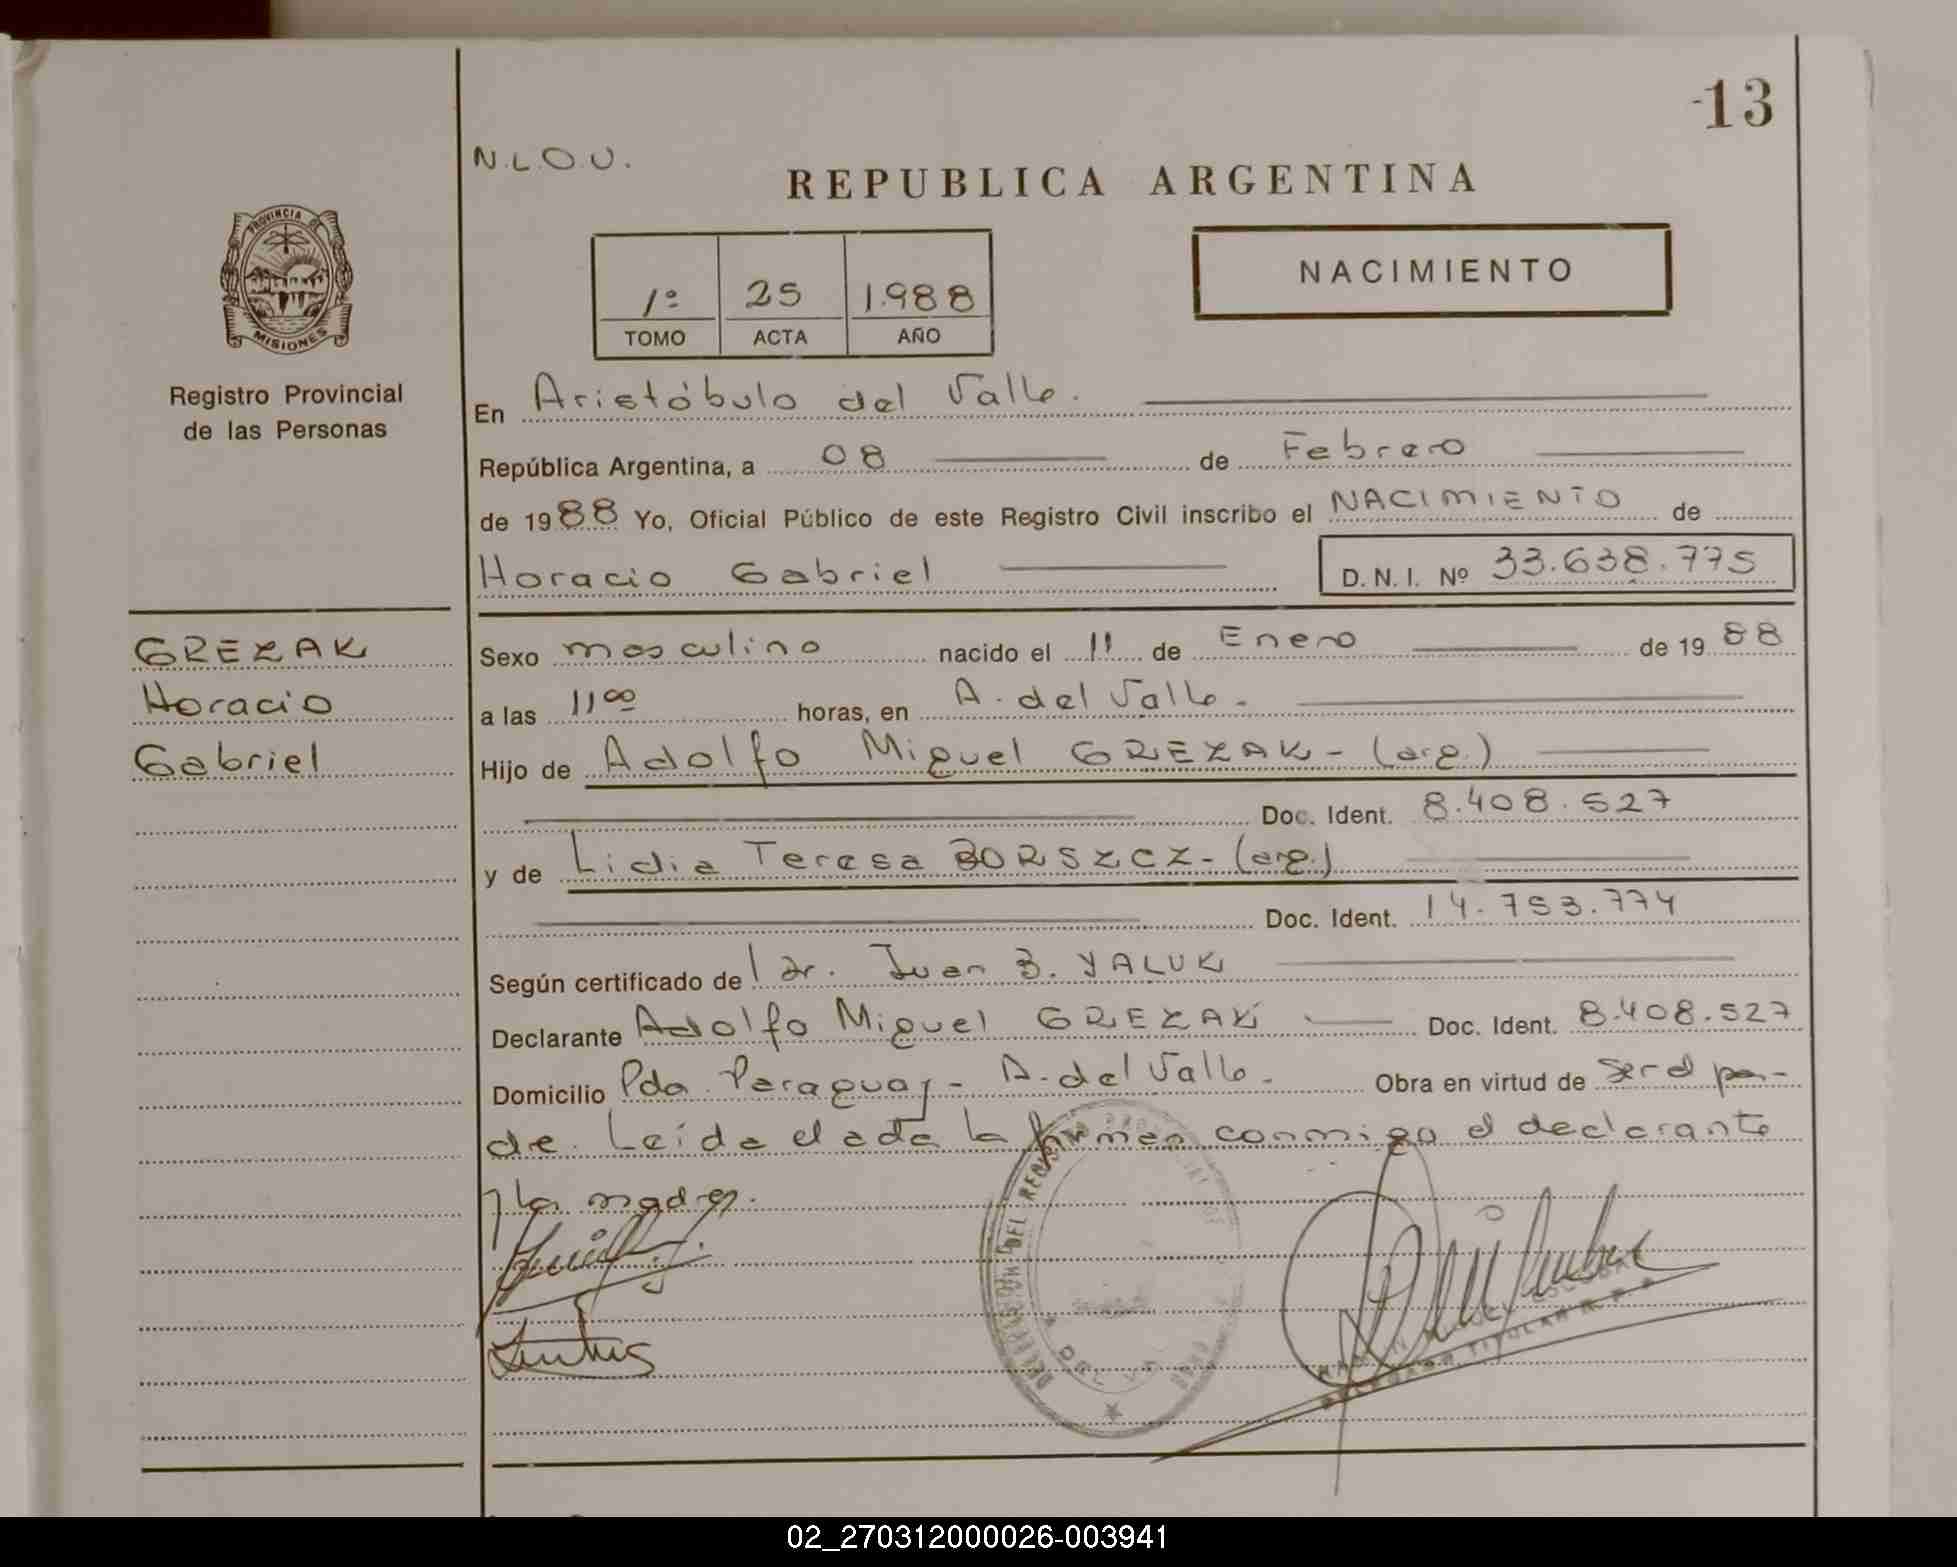 -13
N.L.O.U.
REPUBLICA ARGENTINA
PROVINCIA DE
MISIONES
1º 25 1.988
TOMO ACTA AÑO
NACIMIENTO
Registro Provincial
de las Personas
En Aristóbulo del Valle.
República Argentina, a 08 de Febrero
de 1988 Yo, Oficial Público de este Registro Civil inscribo el NACIMIENTO de
Horacio Gabriel D. N. I. Nº 33.638.775
GREZAK
Horacio
Gabriel
Sexo masculino nacido el 11 de Enero de 1988
a las 11 00 horas, en A. del Valle.
Hijo de Adolfo Miguel GREZAK - (arg.)
Doc. Ident. 8.408.527
y de Lidia Teresa BORSZCZ - (arg.)
Doc. Ident. 14.753.774
Según certificado de Dr. Juan B. YALUK
Declarante Adolfo Miguel GREZAK Doc. Ident. 8.408.527
Domicilio Pda. Paraguay - A. del Valle. Obra en virtud de ser el pa-
dre. Leída el acta la firman conmigo el declarante
y la madre.
DEL REGISTRO
DELEGADO TITULAR R.P.P.
02_270312000026-003941